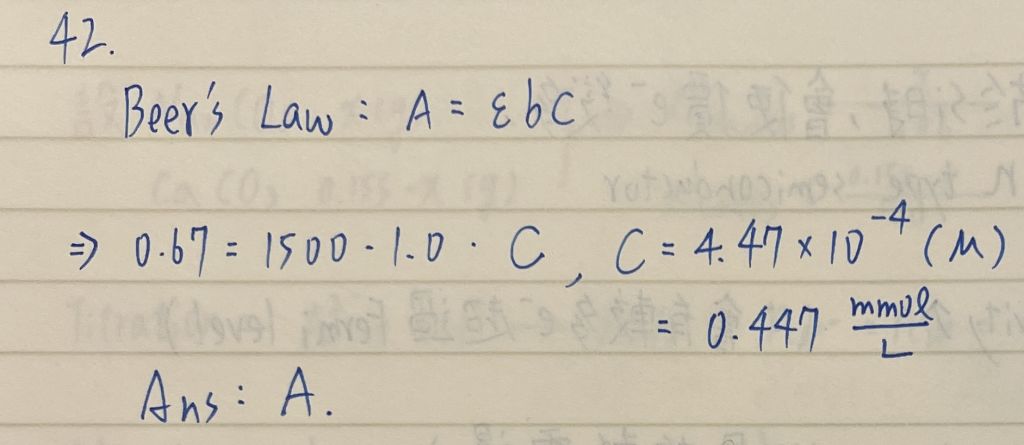 42.
Beer's Law : A = εbC
⇒ 0.67 = 1500 · 1.0 · C , C = 4.47 × 10⁻⁴ (M)
= 0.447 mmol/L
Ans : A.